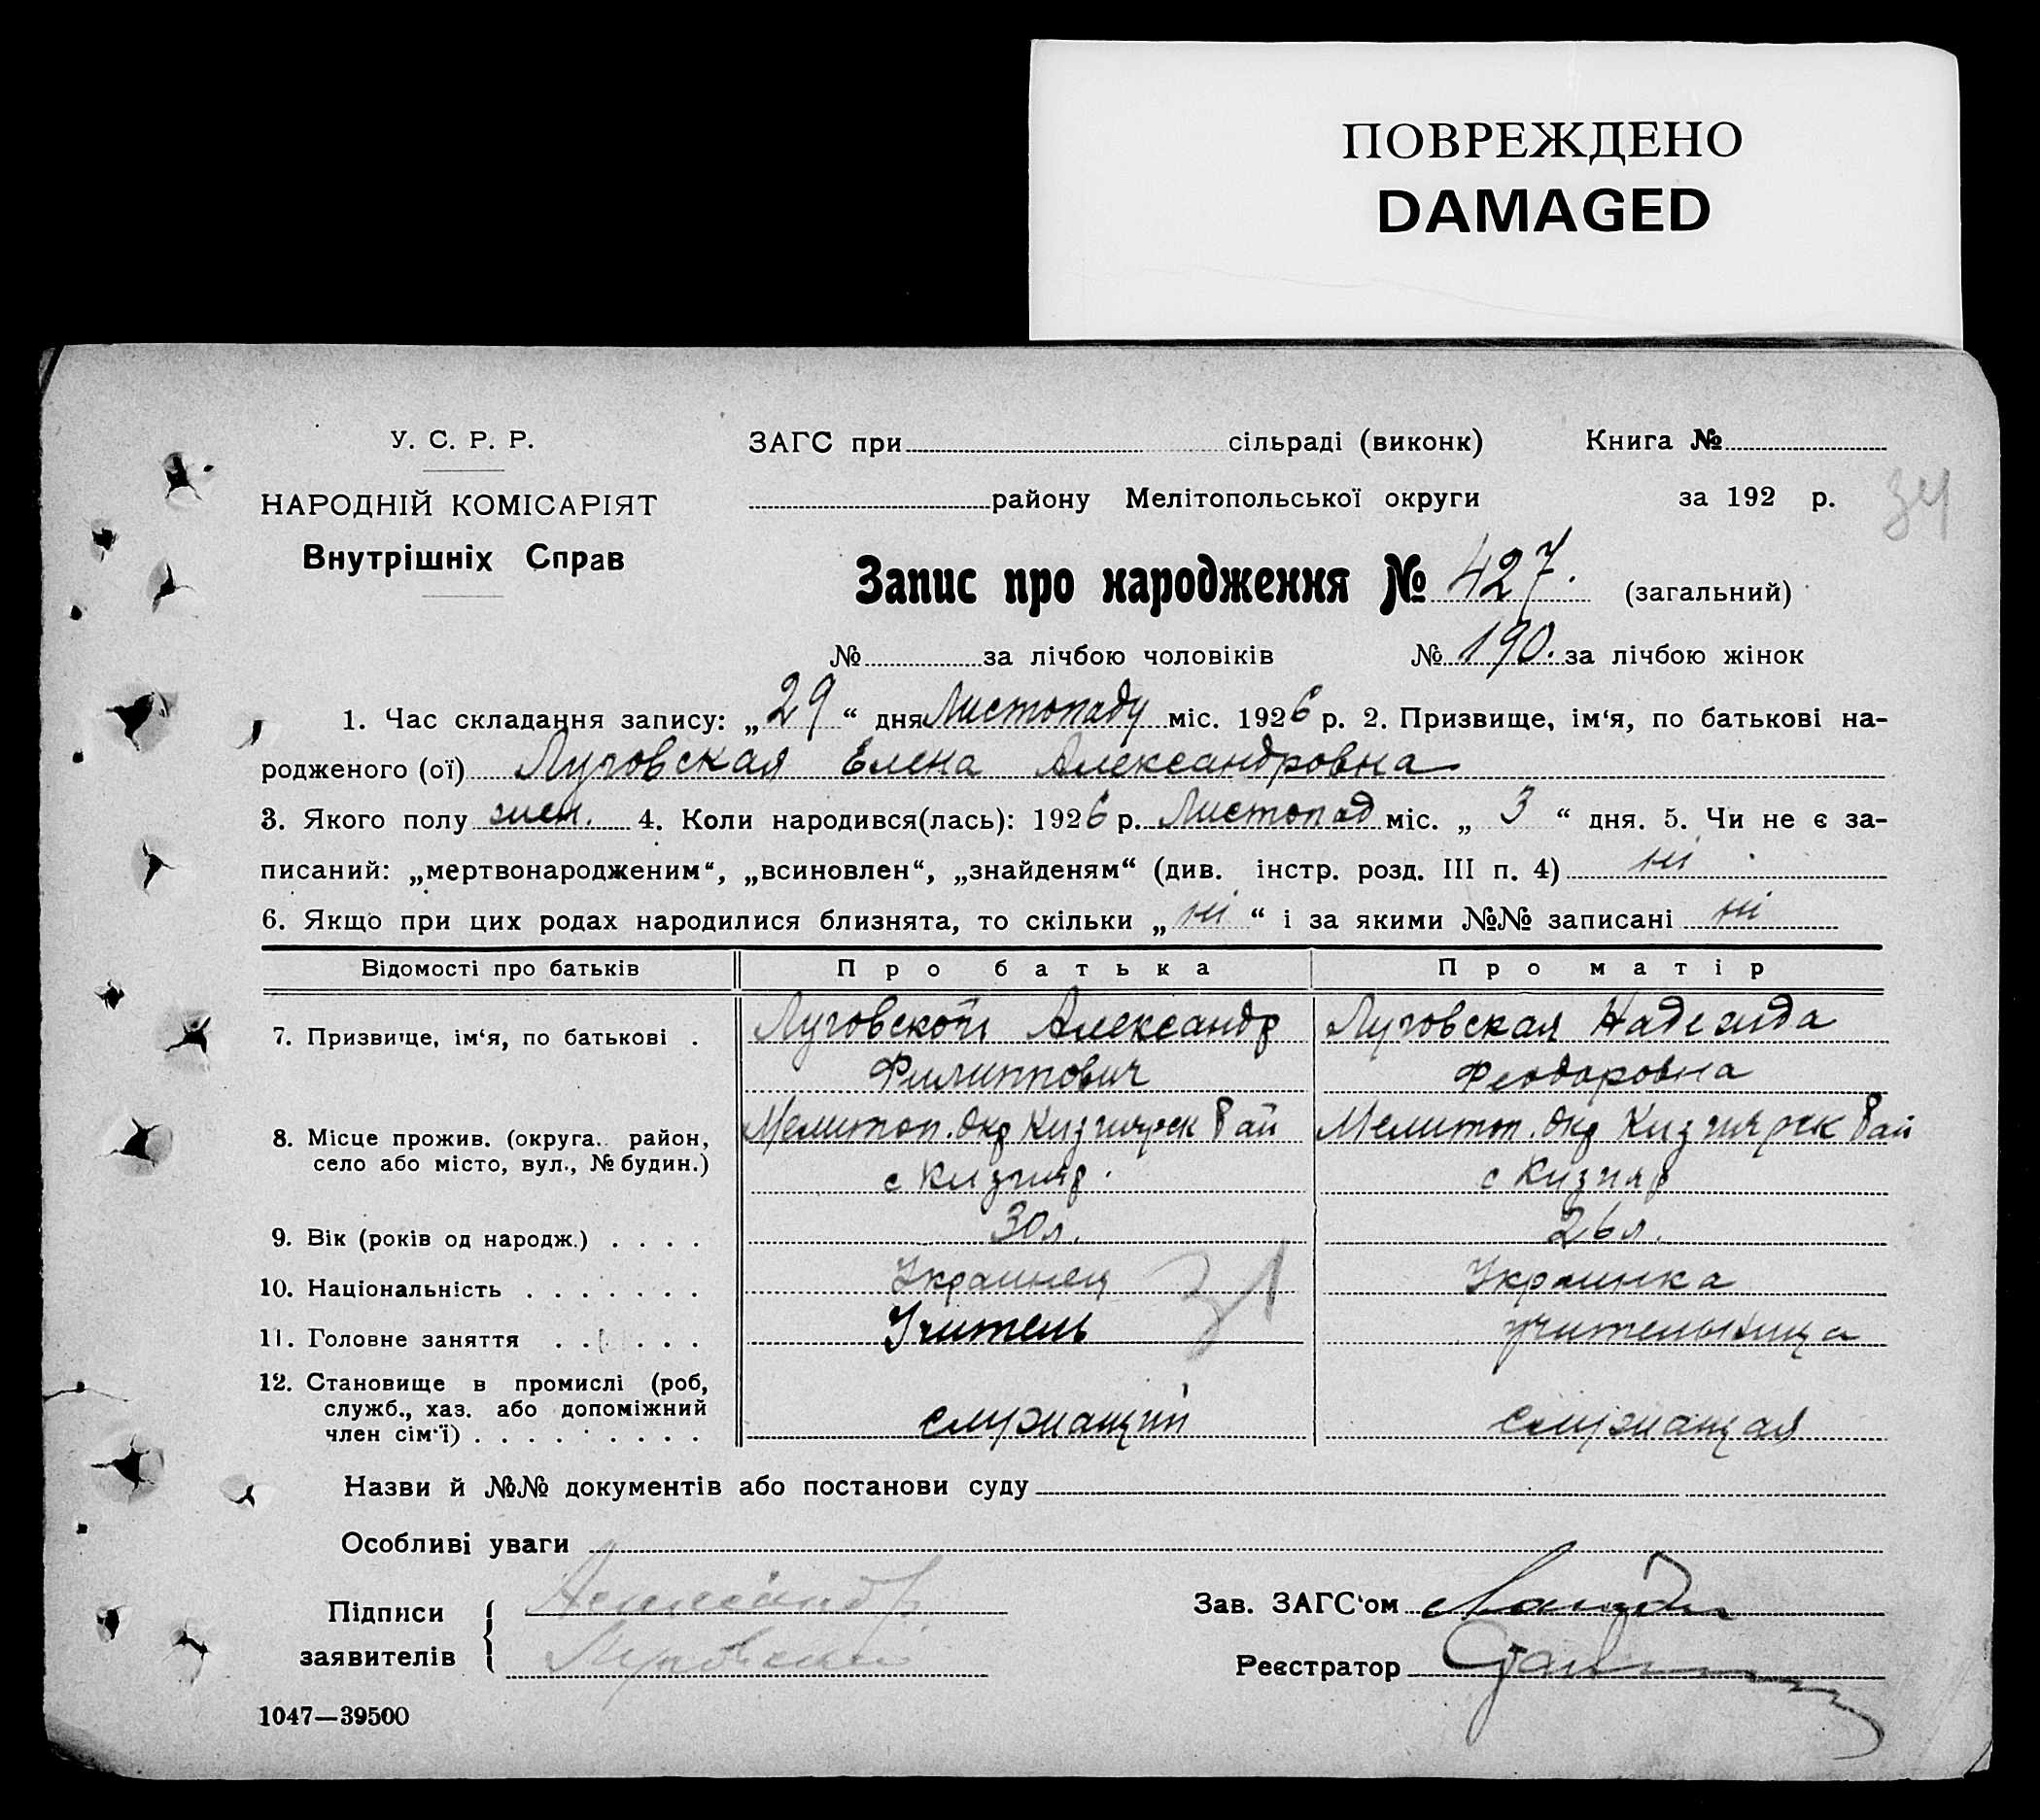 ПОВРЕЖДЕНО
DAMAGED
У. С. Р. Р.
НАРОДНІЙ КОМІСАРІЯТ
Внутрішніх Справ
ЗАГС при сільраді (виконк) Книга №
району Мелітопольської округи за 192 р. 34
Запис про народження № 427. (загальний)
№ за лічбою чоловіків № 190. за лічбою жінок
1. Час складання запису: „29“ дня Листопаду міс. 1926 р. 2. Призвище, ім‘я, по батькові на-
родженого (ої) Луговская Елена Александровна
3. Якого полу жен. 4. Коли народився(лась): 1926 р. Листопад міс. „3“ дня. 5. Чи не є за-
писаний: „мертвонародженим“, „всиновлен“, „знайденям“ (див. інстр. розд. III п. 4) ні
6. Якщо при цих родах народилися близнята, то скільки „ні“ і за якими №№ записані ні
Відомості про батьків Про батька Про матір
7. Призвище, ім‘я, по батькові . Луговской Александр Луговская Надежда
Филиппович Феодоровна
8. Місце прожив. (округа. район, Мелитоп. окр Кизиярск рай Мелитоп. окр Кизиярск рай
село або місто, вул., № будин.) с Кизияр. с Кизияр
9. Вік (років од народж.) . . . . 30 л. 26 л.
10. Національність . . . . . . . Украинец 31 Украинка
11. Головне заняття . . . . . . Учитель учительница
12. Становище в промислі (роб,
служб., хаз. або допоміжний служащий служащая
член сім‘ї) . . . . . . . . .
Назви й №№ документів або постанови суду
Особливі уваги
Підписи Александр Зав. ЗАГС‘ом
заявителів Луговской Реєстратор
1047—39500